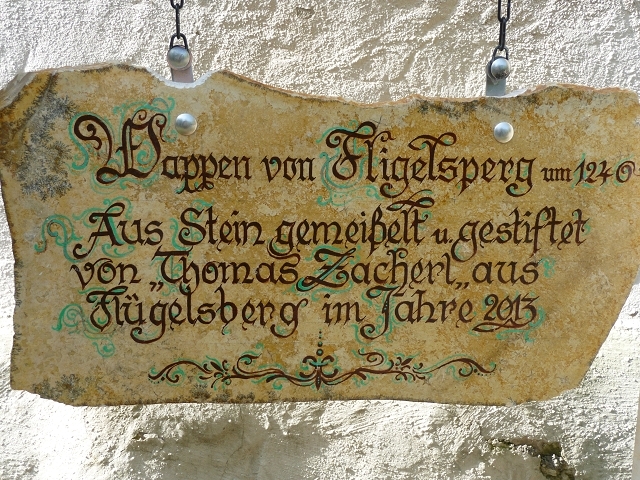 Wappen von Fligelsperg um 1240
Aus Stein gemeißelt u. gestiftet
von „Thomas Zacherl„ aus
Flügelsberg im Jahre 2013